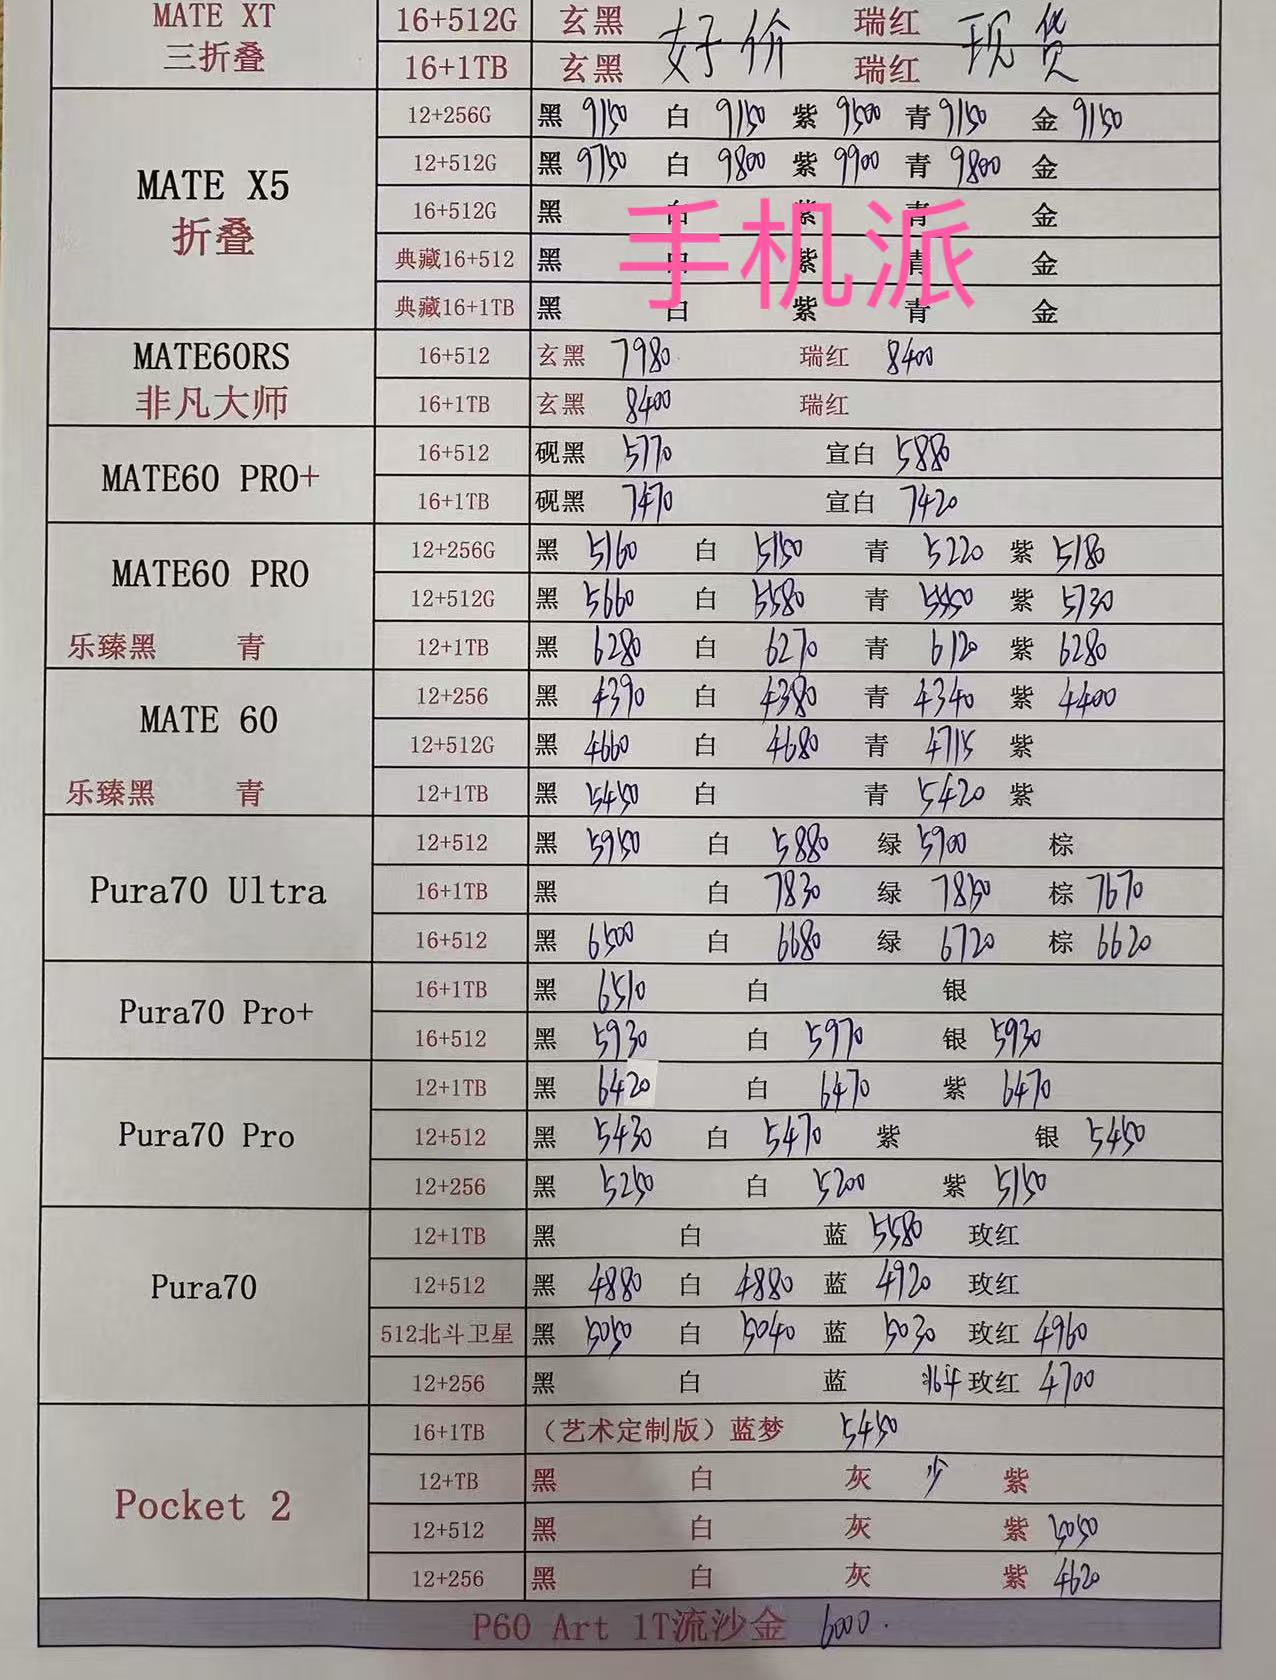 MATE XT 16+512G 玄黑 好价 瑞红 现货
三折叠 16+1TB 玄黑 瑞红
12+256G 黑 9150 白 9150 紫 9500 青 9150 金 9150
12+512G 黑 9750 白 9800 紫 9900 青 9800 金
MATE X5 16+512G 黑 白 紫 青 金
手机派
折叠 典藏16+512 黑 白 紫 青 金
典藏16+1TB 黑 白 紫 青 金
MATE60RS 16+512 玄黑 7980 瑞红 8400
非凡大师 16+1TB 玄黑 8400 瑞红
MATE60 PRO+ 16+512 砚黑 5770 宣白 5880
16+1TB 砚黑 7470 宣白 7420
12+256G 黑 5160 白 5150 青 5220 紫 5180
MATE60 PRO 12+512G 黑 5660 白 5580 青 5550 紫 5730
乐臻黑 青 12+1TB 黑 6280 白 6270 青 6120 紫 6280
12+256 黑 4390 白 4380 青 4340 紫 4400
MATE 60 12+512G 黑 4660 白 4680 青 4715 紫
乐臻黑 青 12+1TB 黑 5450 白 青 5420 紫
12+512 黑 5950 白 5880 绿 5900 棕
Pura70 Ultra 16+1TB 黑 白 7830 绿 7850 棕 7670
16+512 黑 6500 白 6680 绿 6720 棕 6620
Pura70 Pro+ 16+1TB 黑 6510 白 银
16+512 黑 5930 白 5970 银 5930
12+1TB 黑 6420 白 6470 紫 6470
Pura70 Pro 12+512 黑 5430 白 5470 紫 银 5450
12+256 黑 5250 白 5200 紫 5150
12+1TB 黑 白 蓝 5580 玫红
Pura70 12+512 黑 4880 白 4880 蓝 4920 玫红
512北斗卫星 黑 5050 白 5040 蓝 5030 玫红 4960
12+256 黑 白 蓝 北斗 玫红 4700
16+1TB （艺术定制版）蓝梦 5450
12+TB 黑 白 灰 少 紫
Pocket 2 12+512 黑 白 灰 紫 5050
12+256 黑 白 灰 紫 4620
P60 Art 1T流沙金 6000.